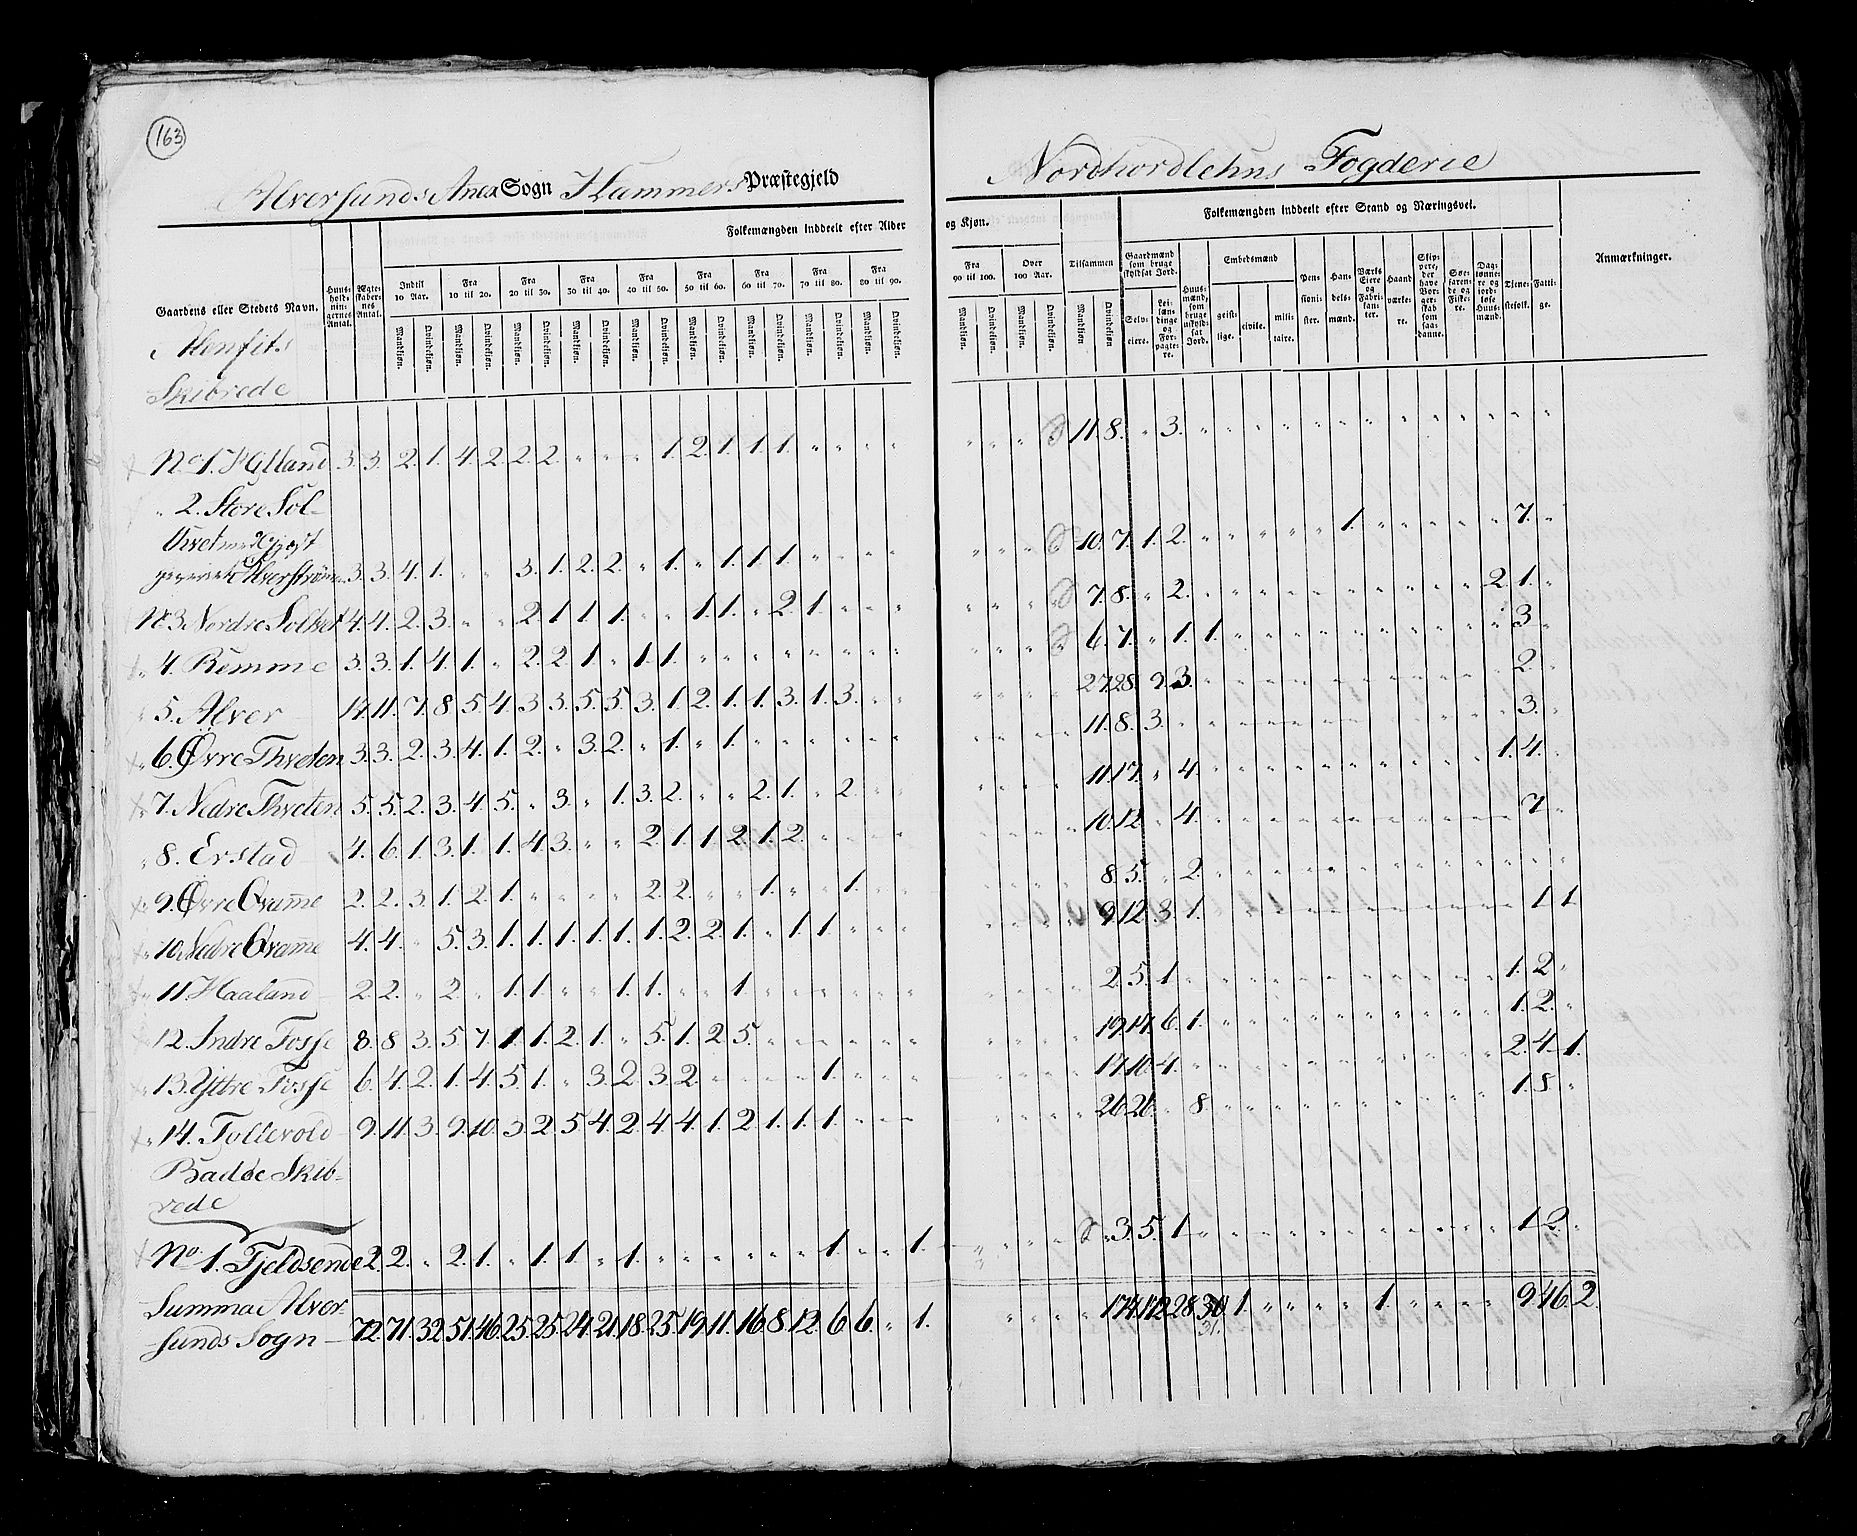 163
Alversunds Anex Sogn Hammers Præstegjeld
Nordhordlehns Fogderie
Folkemængden inddeelt efter Alder
og Kjøn.
Folkemængden inddeelt efter Stand og Næringsvei.
Gaardens eller Stedets Navn.
Huus-holdnin-gernes Antal.
Ægte-skaber-nes Antal.
Indtil 10 Aar.
Fra 10 til 20.
Fra 20 til 30.
Fra 30 til 40.
Fra 40 til 50.
Fra 50 til 60.
Fra 60 til 70.
Fra 70 til 80.
Fra 80 til 90.
Fra 90 til 100.
Over 100 Aar.
Tilsammen
Mandkjøn. Qvindekjøn.
Gaardmænd som bruge skyldsat Jord.
Selv-eiere.
Lei-lændinge og For-pagte-re.
Huus-mænd, som bruge uskyld-sat Jord.
Embedsmænd
geist-lige.
civile.
mili-taire.
Pen-sioni-ster.
Han-dels-mænd.
Værks Eiere og Fabri-kan-ter.
Haand værke-re.
Skip-pere, der have Bor-ger-skab som saa-danne.
Søe-farende og Fiske-re.
Dag-lønne-re og jord-løse Huus-mænd.
Tjene-stefolk.
Fatti-ge.
Anmærkninger.
Skibrede
No 1. 3. 3. 2. 1. 4. 2. 2. 2. " " " 1. 2. 1. 1. 1. " " " " 11. 8. " 3.
" 2. Store Sol-
3. 3. 4. 1. " " 3. 1. 2. 2. " 1. " 1. 1. 1. " " " " 10. 7. 1. 2. 1. 7.
No 3. Nordre 4. 4. 2. 3. " " 2. 1. 1. 1. " " 1. 1. " 2. 1. " " " 7. 8. " 2. 2. 1.
" 4. Remme 3. 3. 1. 4. 1. " 2. 2. 1. " 1. 1. 6. 7. " 1. 1. 3.
" 5. Alver 11. 7. 8. 5. 4. 3. 3. 5. 5. 3. 1. 2. 1. 1. 3. 1. 3. " " 27. 28. 9. 3. 2.
" 6. Øvre Thveten 3. 3. 2. 3. 4. 1. 2. " 3. 2. " 1. " 1. 11. 8. 3. 3.
" 7. Nedre Thveten 5. 5. 2. 3. 4. 5. " 3. " 1. 3. 2. " " 2. 1. " 2. " " 11. 17. " 4. 1. 4.
" 8. Erstad 4. 6. 1. 3. 1. 1. 4. 3. " " 2. 1. 1. 2. 1. 2. 10. 12. " 4. 7.
" 9. Øvre 2. 2. 3. 1. 2. 1. " " " " 2. 2. " " 1. " " 1. " " 8. 5. " 2.
" 10. Nedre 4. 4. " 5. 3. 1. 1. 1. 1. 1. 1. 2. 2. 1. " 1. 1. 9. 12. 3. 1. 1. 1.
" 11. Haaland 2. 2. " 2. " 1. 1. " " 1. 1. " " 1. 2. 5. 1. 1. 2.
" 12. Indre Fosse 8. 8. 3. 5. 7. 1. 1. 2. 1. " 5. 1. 2. 5. 19. 14. 6. 1. 1. 2.
" 13. Yttre Fosse 6. 4. 2. 1. 4. 5. 1. " 3. 2. 3. 2. 1. 10. 4. 2. 4. 1.
" 14. 9. 11. 3. 9. 10. 3. 2. 5. 4. 2. 4. 4. 1. 2. 1. 1. 1. 26. 26. " 8. 1. 8.
Radøe Skib-
rede
No. 1. Fjeldsende 2. 2. " 2. 1. " 1. 1. " 1. 1. " " 1. 3. 5. 1. 1. 2.
Summa Alver-
sunds Sogn 72. 71. 32. 51. 46. 25. 25. 24. 21. 18. 25. 19. 11. 16. 8. 12. 6. 6. " 1. 174. 172. 28. 30. 1. 1. 9. 46. 2.
31.